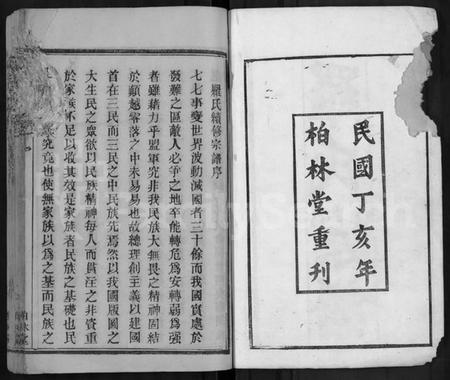 民國丁亥年
柏林堂重刋
羅氏續修宗譜序
七七事變世界波動滅國者三十餘而我國實處於
發難之區敵人必爭之地卒能轉危爲安轉弱爲强
者雖藉力乎盟軍究非我民族大無畏之精神固結
於顚越零落之中未易易也故總理創主義以建國
首在三民而三民之中民族先焉然以我國版圖之
大生民之眾欲以民族精神每人而貫注之非資重
於家族不足以收其效是家族者民族之基礎也民
究竟也使無家族以爲之基而民族之
柏林堂